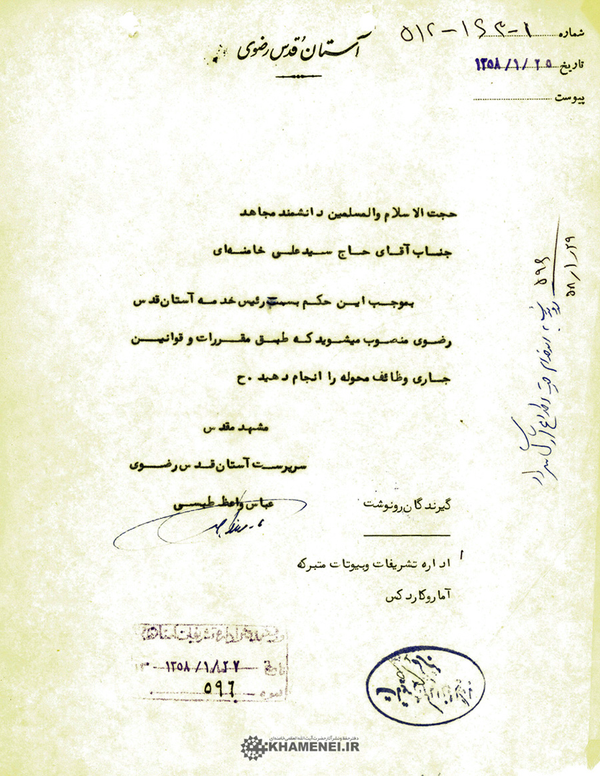 آستان قدس رضوی
شماره ۱-۱۶۳-۵۱۲
تاریخ ۱۳۵۸/۱/۲۵
پیوست
حجت الاسلام والمسلمین دانشمند مجاهد
جناب آقای حاج سیدعلی خامنه‌ای
بموجب این حکم بسمت رئیس خدمه آستان قدس
رضوی منصوب میشوید که طبق مقررات و قوانین
جاری وظائف محوله را انجام دهید .ح
مشهد مقدس
سرپرست آستان قدس رضوی
عباس واعظ طبسی
گیرندگان رونوشت
اداره تشریفات وبیوتات متبرکه
آماروکاردکس
۵۹۶
۵۸/۱/۲۹
تاریخ ۱۳۵۸/۱/۲۷
۵۹۶
دفتر حفظ و نشر آثار حضرت آیت‌الله العظمی خامنه‌ای
KHAMENEI.IR